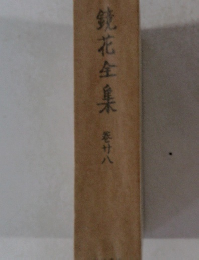 鏡花全集 巻廿八